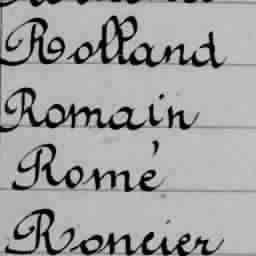 Rolland
Romain
Romé
Roncier